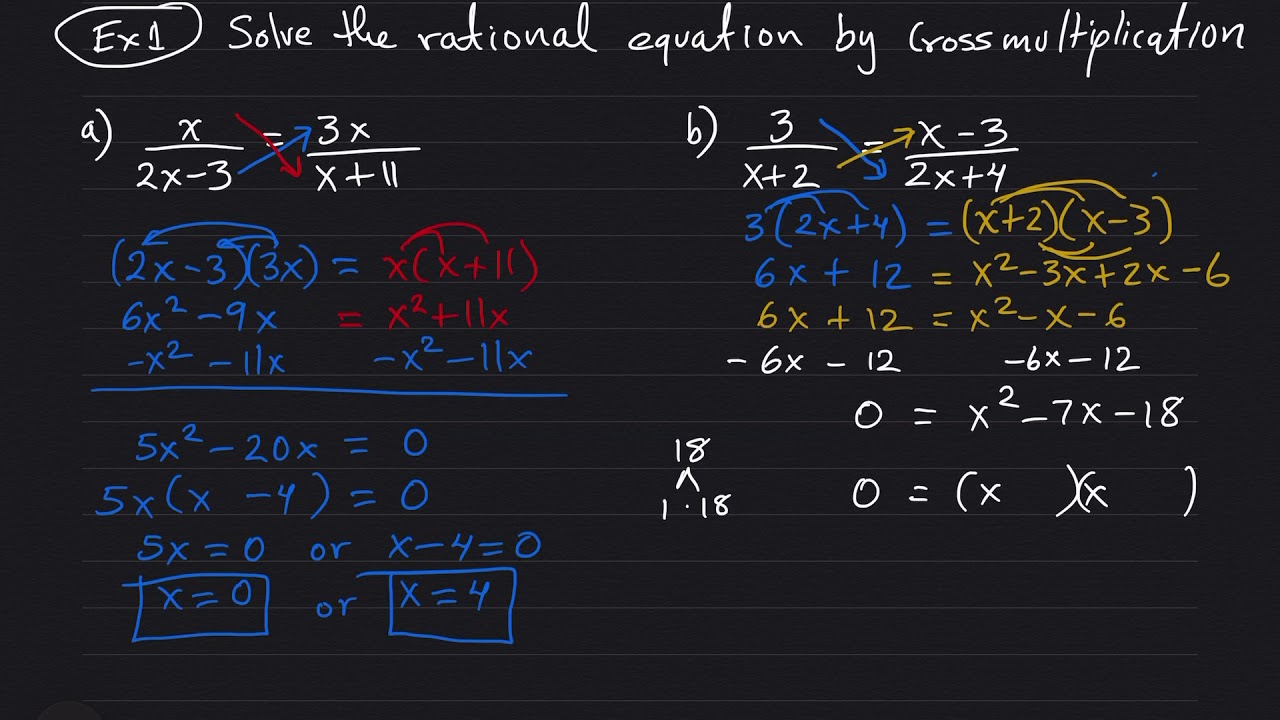 Ex1 Solve the rational equation by Crossmultiplication
a) x/(2x-3) = 3x/(x+11)
(2x-3)(3x) = x(x+11)
6x² -9x = x²+11x
-x² -11x -x² -11x
5x² -20x = 0
5x(x -4) = 0
5x = 0 or x-4=0
x=0 or x=4
b) 3/(x+2) = x-3/(2x+4)
3(2x+4) = (x+2)(x-3)
6x + 12 = x²-3x+2x-6
6x + 12 = x²-x-6
-6x -12 -6x-12
0 = x²-7x-18
18
1·18
0 = (x )(x )